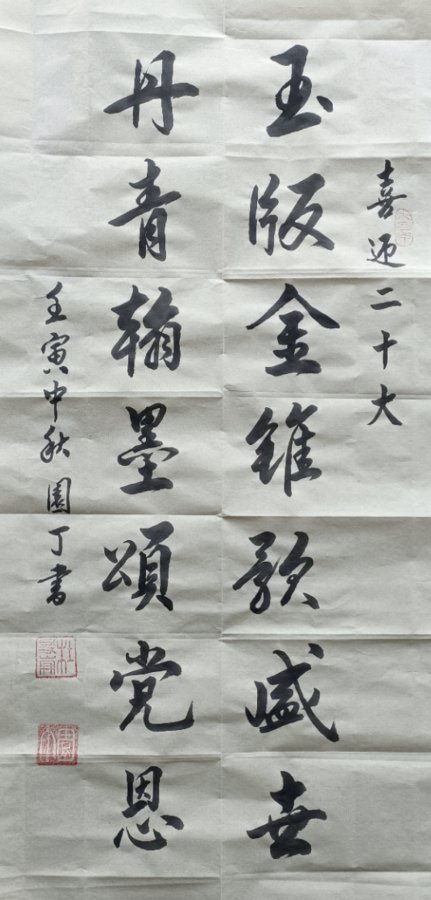 喜迎二十大
玉版金錐歌盛世
丹青翰墨頌党恩
壬寅中秋園丁書